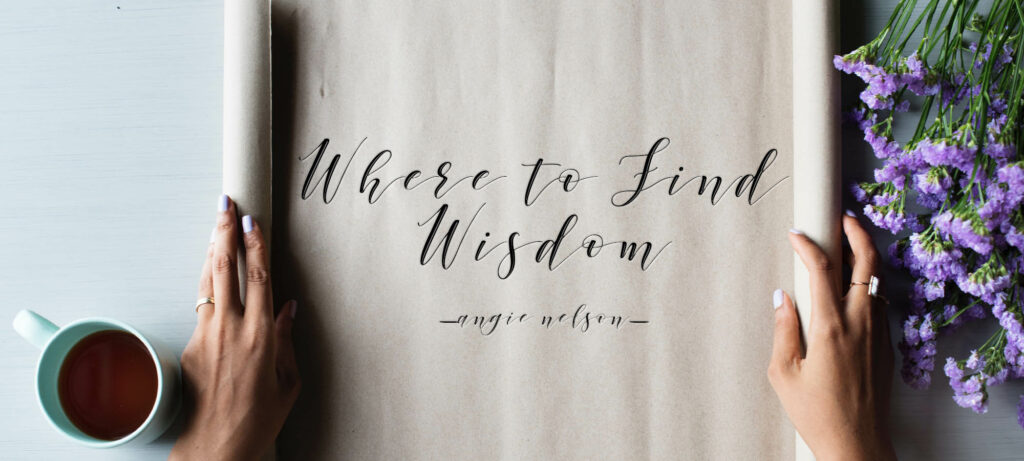 Where to Find
Wisdom
—angie nelson—